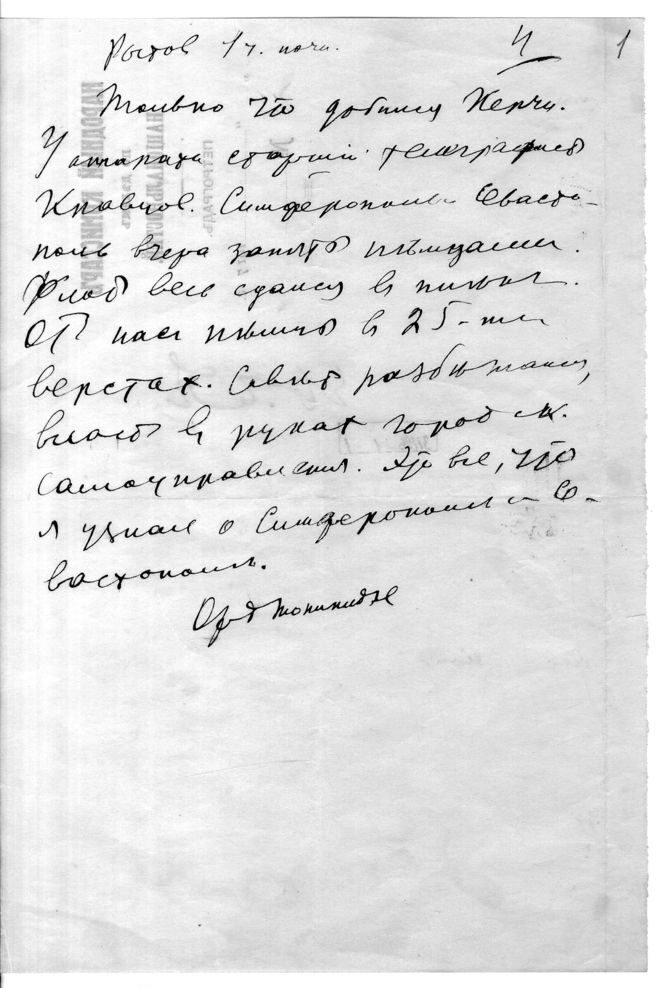 Ростов 1 ч. ночи.
4
1
Только что добился Керчи.
У аппарата старший телеграфист
Кравцов. Симферополь Севасто-
поль вчера заняты нѣмцами.
Флот весь сдался в
От нас нѣмцы в 25-ти
верстах. Совѣт разбѣжался,
власть в руках городск.
самоуправления. Это все, что
я узнал о Симферополѣ и Се-
вастополѣ.
Орджоникидзе
НАРОДНЫЙ КОМИССАР
НАЦІОНАЛЬНОСТ
ПЕТРОГРАДЪ